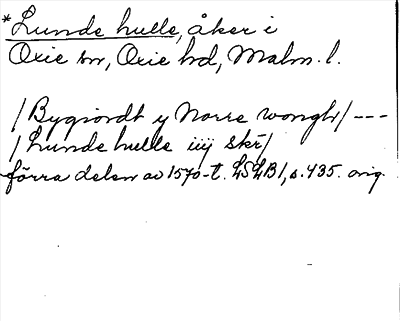 *Lunde hulle, åker i
Oxie sn, Oxie hd, Malm. l.
/Bygiordt y Norre wongh/ ---
/Lunde hulle iiij skr/
förra delen av 1570-t. LSLB1, s. 435. orig.